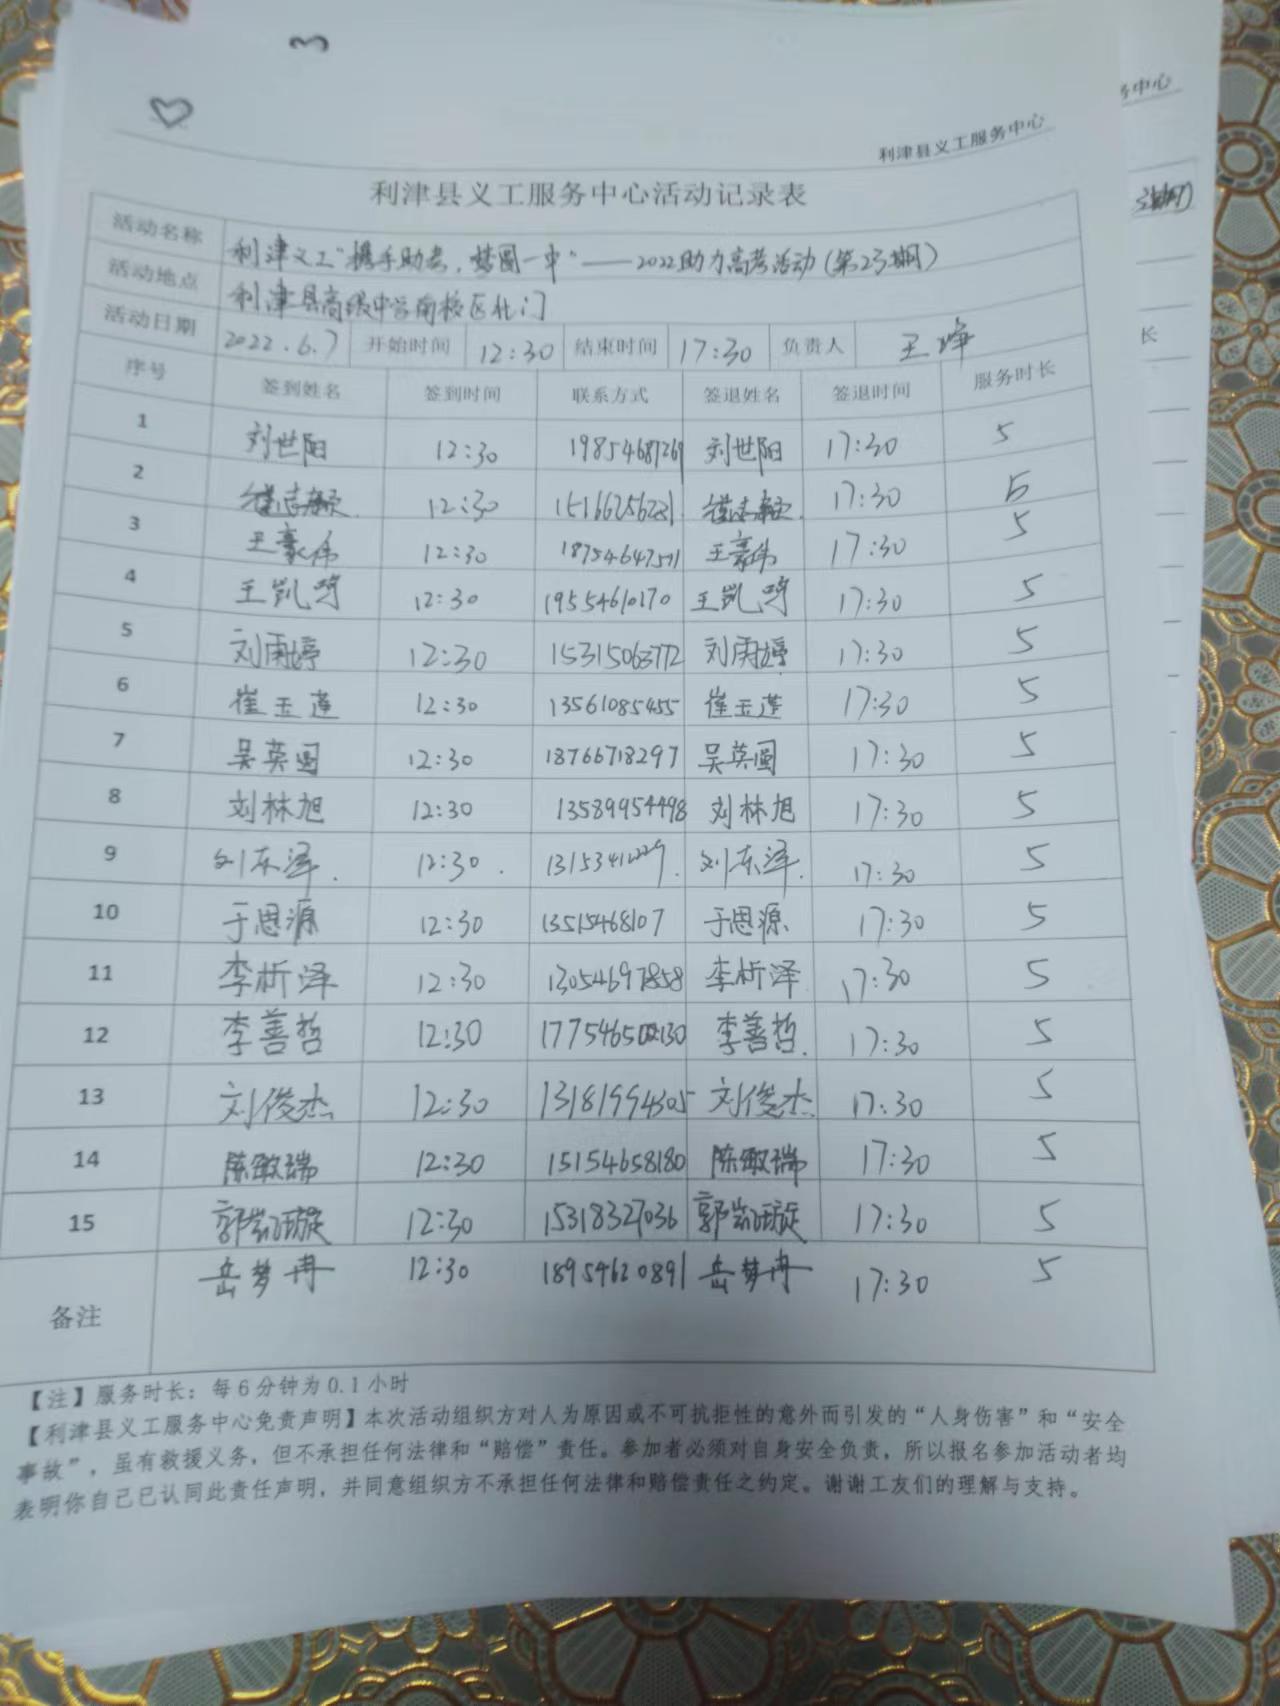 务中心
利津县义工服务中心
利津县义工服务中心活动记录表
活动名称 利津义工"携手助考,梦圆一中"——2022助力高考活动(第23期)
活动地点 利津县高级中学南校区北门
活动日期 2022.6.7 开始时间 12:30 结束时间 17:30 负责人 王峰
序号 签到姓名 签到时间 联系方式 签退姓名 签退时间 服务时长
长
1 刘世阳 12:30 19854687269 刘世阳 17:30 5
2 12:30 15166256231 17:30 5
3 王豪伟 12:30 18754647511 王豪伟 17:30 5
4 王凯鸣 12:30 19554610170 王凯鸣 17:30 5
5 刘雨婷 12:30 15315063772 刘雨婷 17:30 5
6 崔玉莲 12:30 13561085455 崔玉莲 17:30 5
7 吴英阁 12:30 18766718297 吴英阁 17:30 5
8 刘林旭 12:30 13589954498 刘林旭 17:30 5
9 刘东泽. 12:30. 刘东泽. 17:30 5
10 于恩源 12:30 13515468107 于恩源 17:30 5
11 李析泽 12:30 13054697858 李析泽 17:30 5
12 李善哲 12:30 李善哲. 17:30 5
13 刘俊杰 12:30 13181994305 刘俊杰 17:30 5
14 陈敏瑞 12:30 15154658180 陈敏瑞 17:30 5
15 郭凯璇 12:30 15318327036 郭凯璇 17:30 5
备注 岳梦冉 12:30 18954620891 岳梦冉 17:30 5
【注】服务时长:每6分钟为0.1小时
【利津县义工服务中心免责声明】本次活动组织方对人为原因或不可抗拒性的意外而引发的“人身伤害”和“安全
事故”,虽有救援义务,但不承担任何法律和“赔偿”责任。参加者必须对自身安全负责,所以报名参加活动者均
表明你自己已认同此责任声明,并同意组织方不承担任何法律和赔偿责任之约定。谢谢工友们的理解与支持。